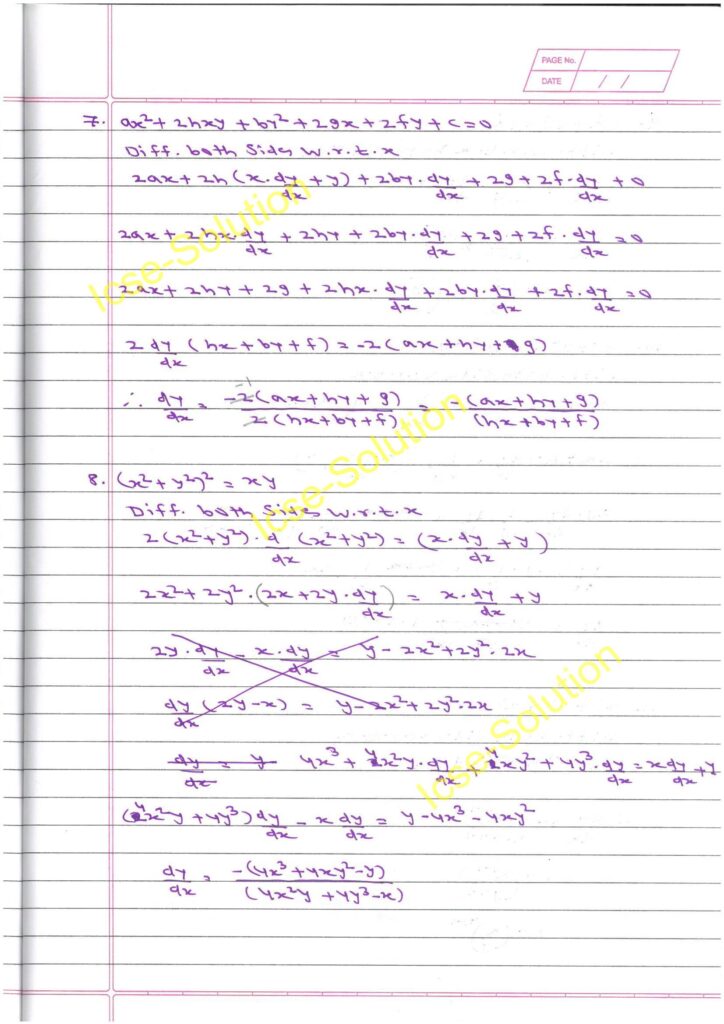 PAGE No.
DATE / /
7. ax² + 2hxy + by² + 2gx + 2fy + c = 0
Diff. both sides w.r.t.x
2ax + 2h (x. dy/dx + y) + 2by. dy/dx + 2g + 2f. dy/dx + 0
2ax + 2hx. dy/dx + 2hy + 2by. dy/dx + 2g + 2f. dy/dx = 0
2ax + 2hy + 2g + 2hx. dy/dx + 2by. dy/dx + 2f. dy/dx = 0
2 dy/dx (hx + by + f) = -2(ax + hy + g)
∴ dy/dx = -2(ax + hy + g)/2(hx + by + f) = -(ax + hy + g)/(hx + by + f)
8. (x² + y²)² = xy
Diff. both sides w.r.t.x
2(x² + y²). d/dx (x² + y²) = (x. dy/dx + y)
2x² + 2y². (2x + 2y. dy/dx) = x. dy/dx + y
2y. dy/dx - x. dy/dx = y - 2x² + 2y². 2x
dy/dx (2y - x) = y - 2x² + 2y². 2x
dy/dx = y 4x³ + 4x²y. dy/dx + 4xy² + 4y³. dy/dx = x dy/dx + y
(4x²y + 4y³) dy/dx - x dy/dx = y - 4x³ - 4xy²
dy/dx = -(4x³ + 4xy² - y)/(4x²y + 4y³ - x)
Icse-Solution
Icse-Solution
Icse-Solution